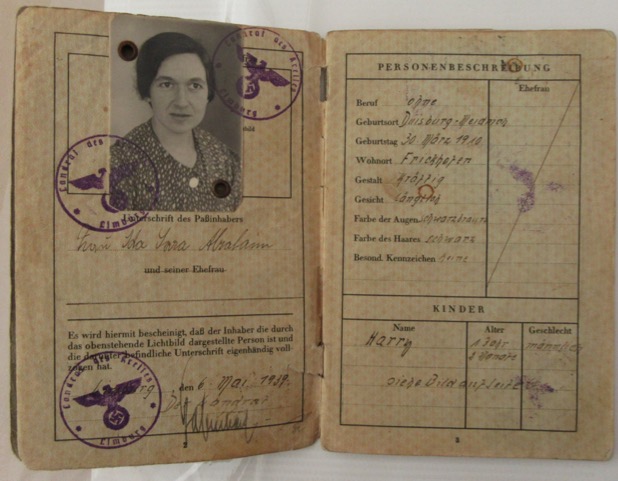 Landrat des Kreises
Limburg
Landrat des Kreises
Limburg
Unterschrift des Paßinhabers
Frau Ida Sara Abraham
und seiner Ehefrau
Es wird hiermit bescheinigt, daß der Inhaber die durch
das obenstehende Lichtbild dargestellte Person ist und
die darunter befindliche Unterschrift eigenhändig voll-
zogen hat.
Landrat des Kreises
Limburg
den 6. Mai 1939
Der Landrat
2
PERSONENBESCHREIBUNG
Ehefrau
Beruf ohne
Geburtsort Duisburg-Meiderich
Geburtstag 30. März 1910
Wohnort Frickhofen
Gestalt kräftig
Gesicht länglich
Farbe der Augen schwarzbraun
Farbe des Haares schwarz
Besond. Kennzeichen keine
KINDER
Name Alter Geschlecht
Harry 1 Jahr männlich
Monate
siehe Bild auf Seite
3